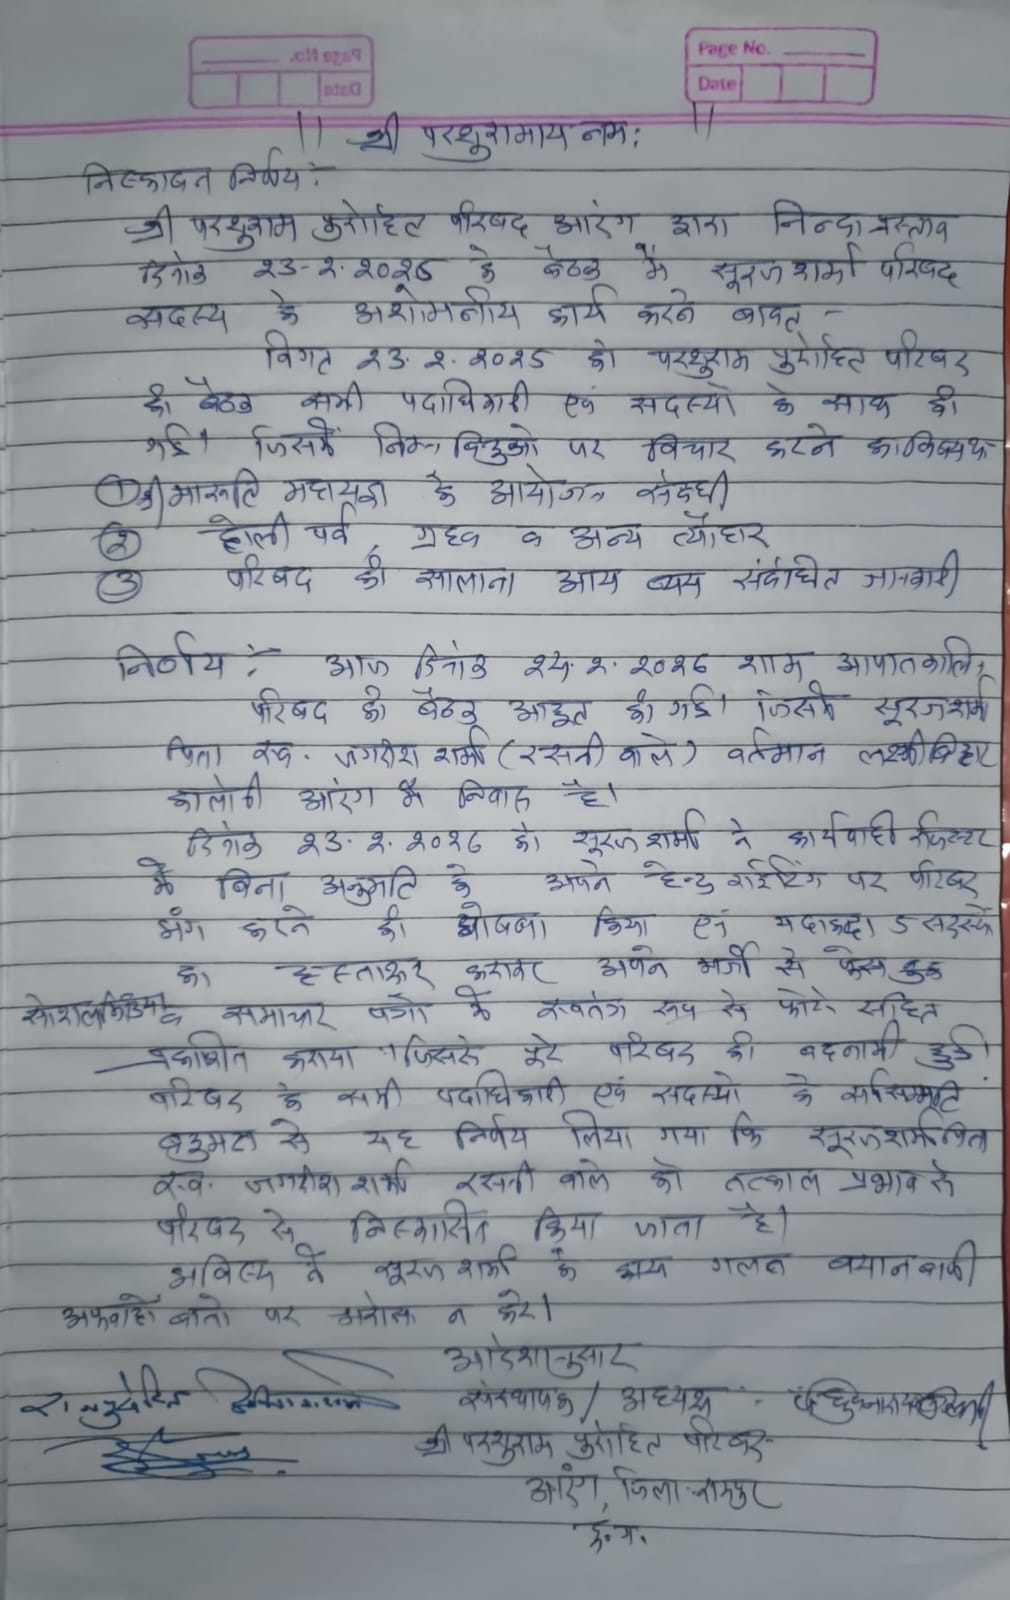 Page No.
Date
|| श्री परशुरामाय नमः ||
निस्कासन निर्णय :-
श्री परशुराम पुरोहित परिषद आरंग द्वारा निन्दा प्रस्ताव
दिनांक २३-२-२०२६ के बैठक में सूरज शर्मा परिषद
सदस्य के अशोभनीय कार्य करने बाबत -
विगत २३.२.२०२६ को परशुराम पुरोहित परिषद
की बैठक सभी पदाधिकारी एवं सदस्यो के साथ की
गई। जिसमें निम्न बिंदुओ पर विचार करने का
① श्री मारुति महायज्ञ के आयोजन संबंधी
② होली पर्व, ग्रहण व अन्य त्यौहार
③ परिषद की सालाना आय व्यय संबंधित जानकारी
निर्णय :- आज दिनांक २५.२.२०२६ शाम आपातकालिन
परिषद की बैठक आहुत की गई। जिसमें सूरज शर्मा
पिता स्व. जगदीश शर्मा (रसनी वाले) वर्तमान लक्ष्मी विहार
कालोनी आरंग में निवास है।
दिनांक २३.२.२०२६ को सूरज शर्मा ने कार्यवाही रजिस्टर
में बिना अनुमति के अपने हेन्ड राईटिंग पर परिषद
भंग करने की घोषणा किया एवं यदाकदा 5 सदस्यों
का हस्ताक्षर कराकर अपने मर्जी से फेसबुक
सोशल मिडिया व समाचार पत्रो में स्वतंत्र रूप से फोटो सहित
प्रकाशित कराया। जिससे पूरे परिषद की बदनामी हुई।
परिषद के सभी पदाधिकारी एवं सदस्यो के सर्वसम्मति
बहुमत से यह निर्णय लिया गया कि सूरज शर्मा पिता
स्व. जगदीश शर्मा रसनी वाले को तत्काल प्रभाव से
परिषद से निस्कासित किया जाता है।
भविष्य में सूरज शर्मा के द्वारा गलत बयानबाजी
अफवाहो बातो पर भरोसा न करे।
आदेशानुसार
संस्थापक / अध्यक्ष
श्री परशुराम पुरोहित परिषद
आरंग, जिला-रायपुर
छ.ग.